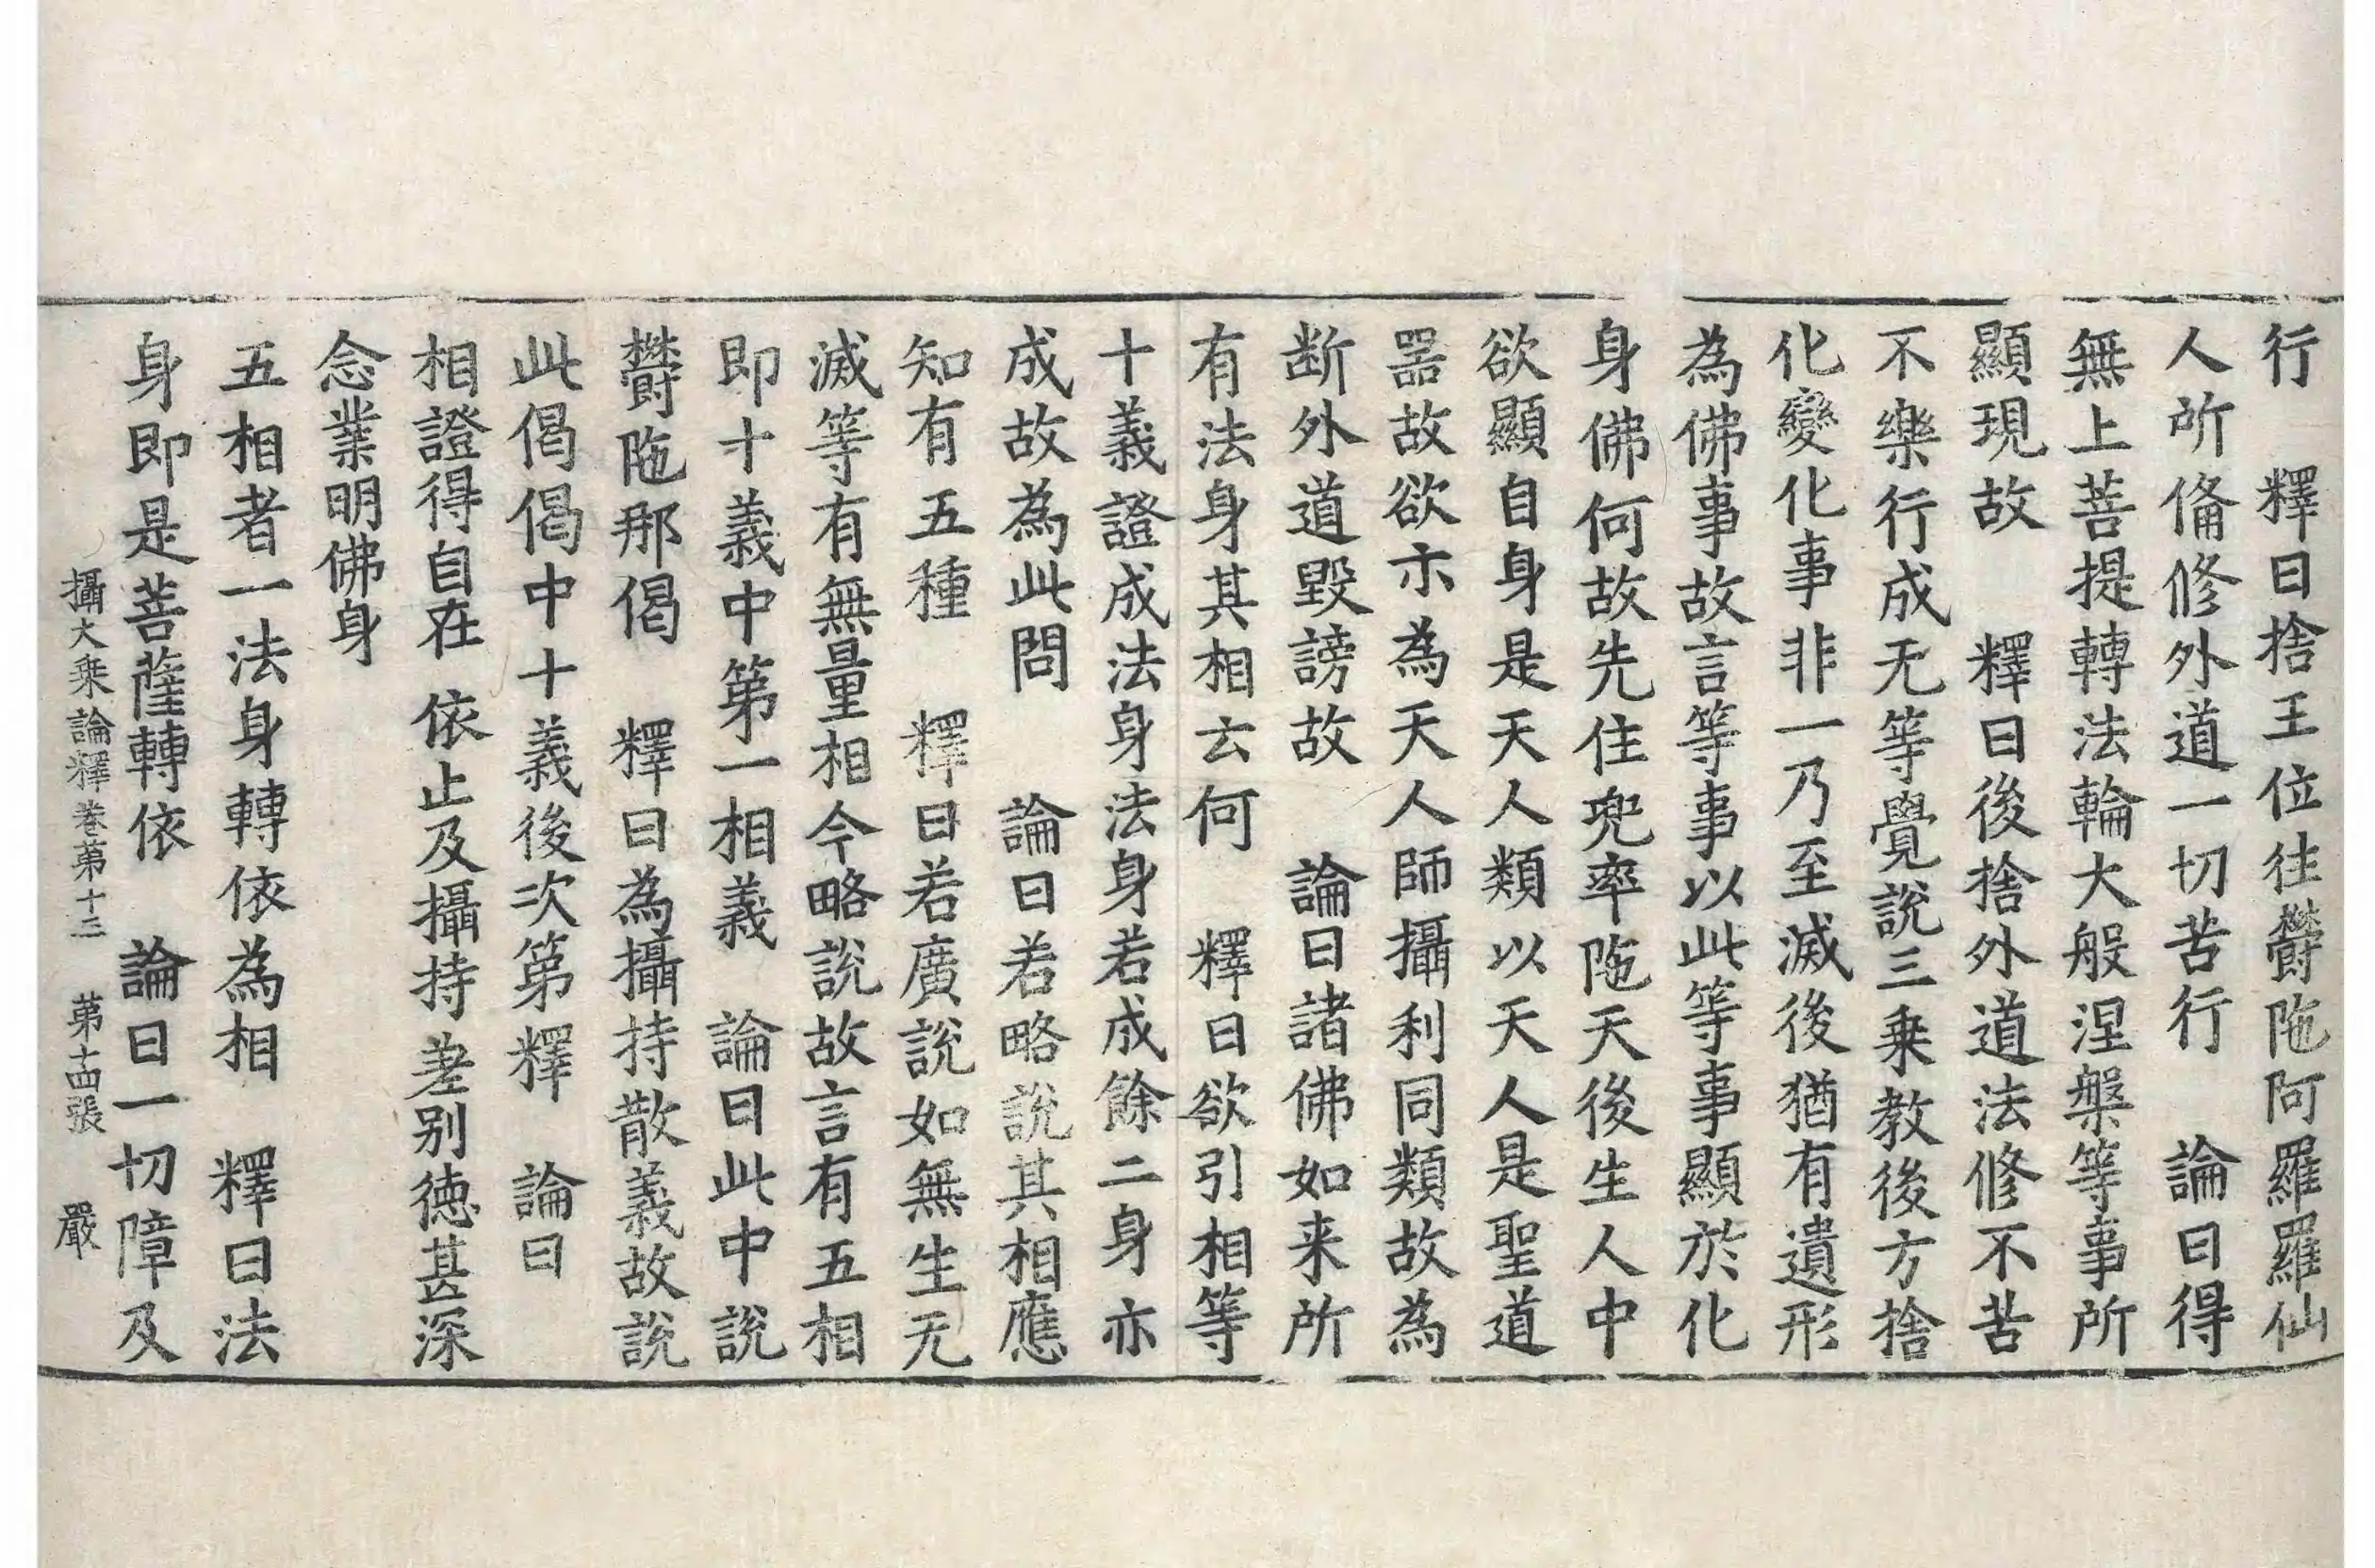 行　釋曰捨王位往欝陁阿羅羅仙
人所俻修外道一切苦行　論曰得
無上菩提轉法輪大般涅槃等事所
顯現故　釋曰後捨外道法修不苦
不樂行成无等覺說三乘教後方捨
化變化事非一乃至滅後猶有遺形
為佛事故言等事以此等事顯於化
身佛何故先住兜率陁天後生人中
欲顯自身是天人類以天人是聖道
器故欲亦為天人師攝利同類故為
断外道毀謗故　論曰諸佛如来所
有法身其相云何　釋曰欲引相等
十義證成法身法身若成餘二身亦
成故為此問　論曰若略說其相應
知有五種　釋曰若廣說如無生无
滅等有無量相今略說故言有五相
即十義中第一相義　論曰此中說
欝陁那偈　釋曰為攝持散義故說
此偈偈中十義後次第釋　論曰
相證得自在　依止及攝持　差别德甚深
念業明佛身
五相者一法身轉依為相　釋曰法
身即是菩薩轉依　論曰一切障及
攝大乘論釋卷苐十三　苐十四張　嚴